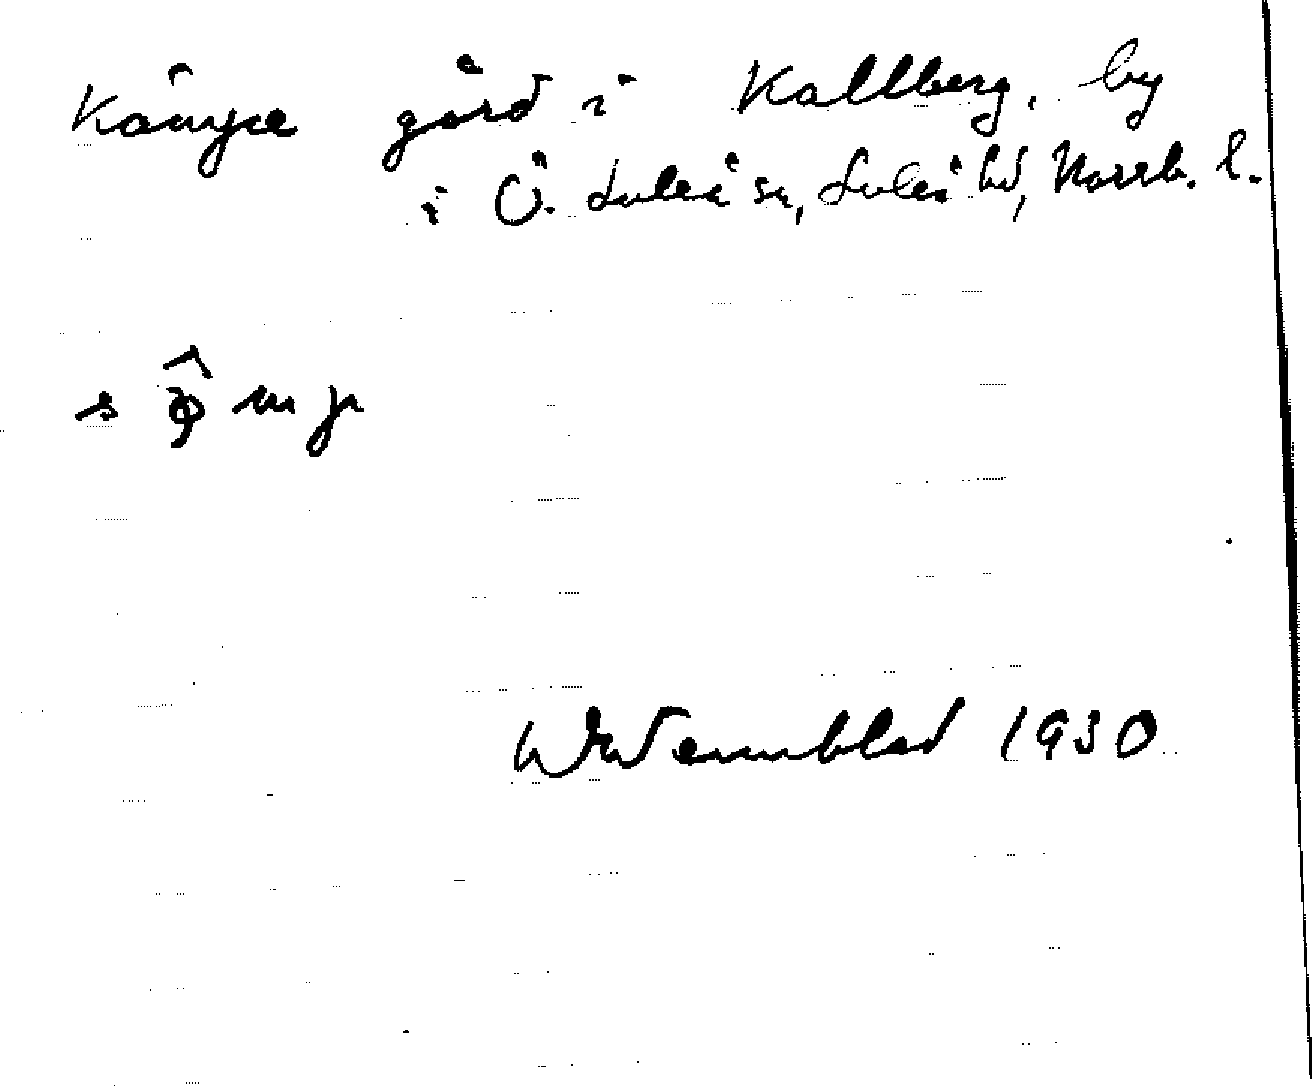 gård i Kallberg, by
i Ö. Luleå sn, Luleå hd, Norrb. l.
Wennblad 1930